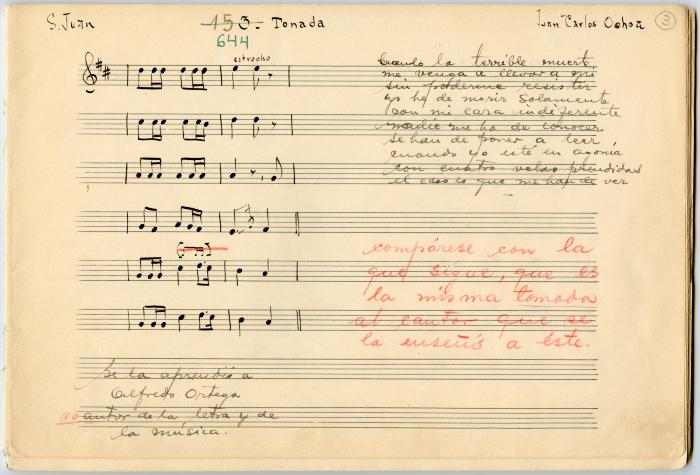 S. Juan
153. Tonada
Juan Carlos Ochoa
3
644
estrecho
Cuando la terrible muerte
me venga a llevar a mí
sin poderme resistir
yo he de morir solamente
con mi cara indiferente
nadie me ha de conocer
se han de poner a leer
cuando yo esté en agonía
con cuatro velas prendidas
el caso es que me han de ver
compárese con la
que sigue, que es
la misma tomada
al cantor que se
la enseñó a éste.
Se la aprendió a
Alfredo Ortega
NO autor de la letra y de
la música.